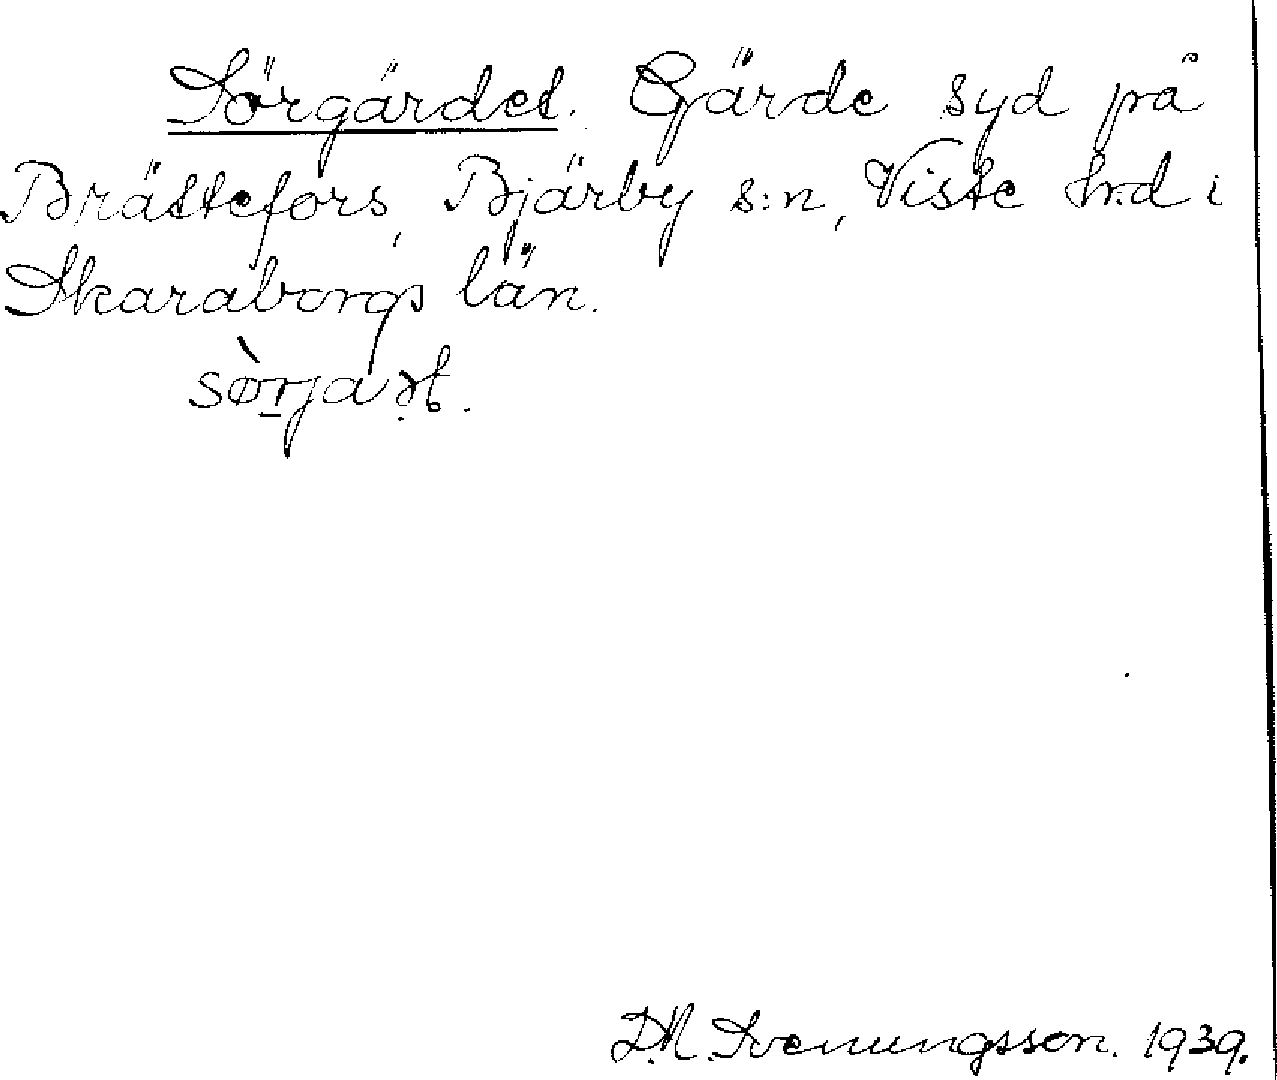 Sörgärdet. Gärde syd på
Brättefors, Bjärby s:n, Viste h:d i
Skaraborgs län.
D.M. Svenungsson. 1939.